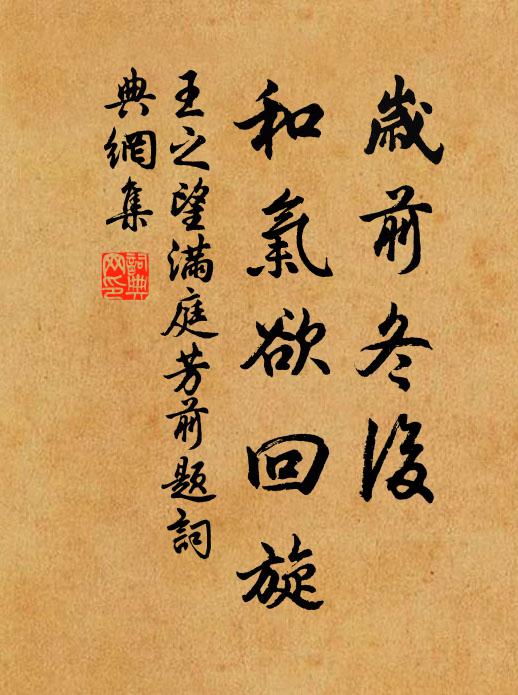 歲前冬後
和氣欲回旋
王之望滿庭芳前題詞
典網集
詞典網印